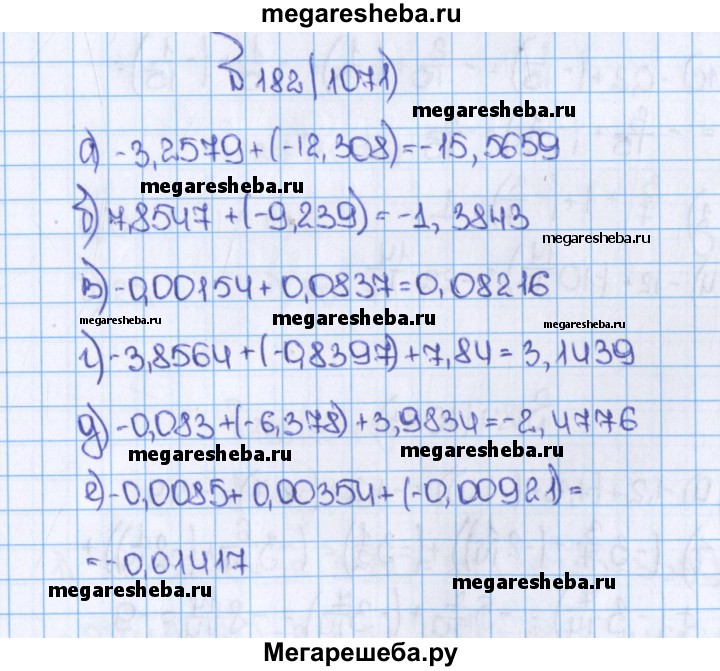 megaresheba.ru
182(1071)
megaresheba.ru
а) -3,2579+(-12,308)=-15,5659
megaresheba.ru
б) 7,8547+(-9,239)=-1,3843
megaresheba.ru
в) -0,00154+0,0837=0,08216
megaresheba.ru megaresheba.ru megaresheba.ru
г) -3,8564+(-0,8397)+7,84=3,1439
д) -0,083+(-6,378)+3,9834=-2,4776
megaresheba.ru megaresheba.ru
е) -0,0085+0,00354+(-0,00921)=
=-0,01417
megaresheba.ru megaresheba.ru
Мегарешеба.ру